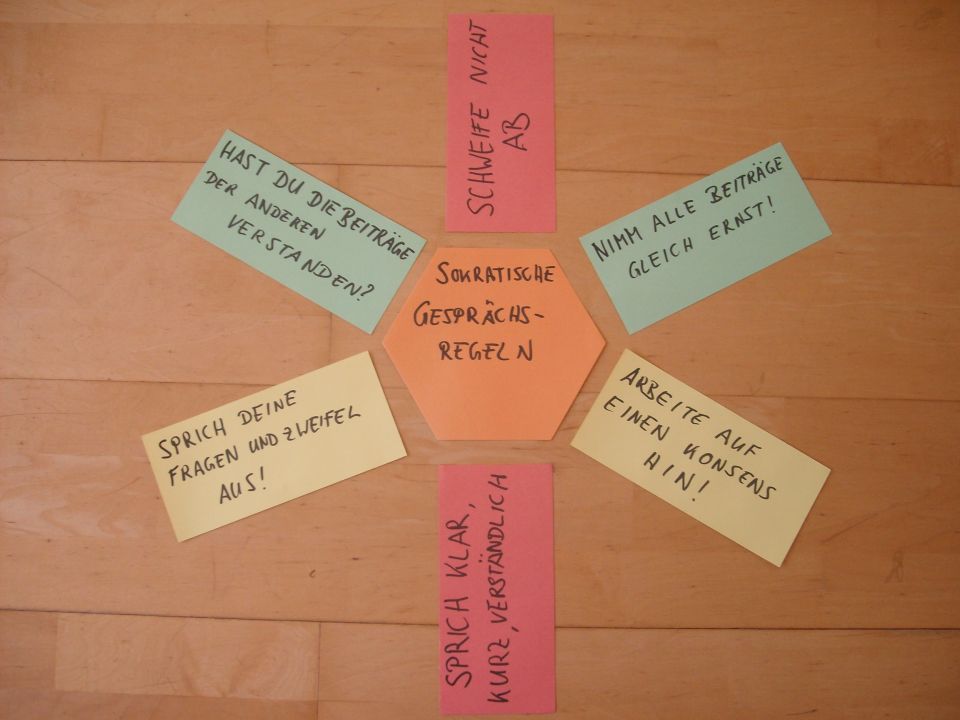 SCHWEIFE NICHT
AB
HAST DU DIE BEITRÄGE
DER ANDEREN
VERSTANDEN?
NIMM ALLE BEITRÄGE
GLEICH ERNST!
SOKRATISCHE
GESPRÄCHS-
REGELN
SPRICH DEINE
FRAGEN UND ZWEIFEL
AUS!
ARBEITE AUF
EINEN KONSENS
HIN!
SPRICH KLAR,
KURZ, VERSTÄNDLICH